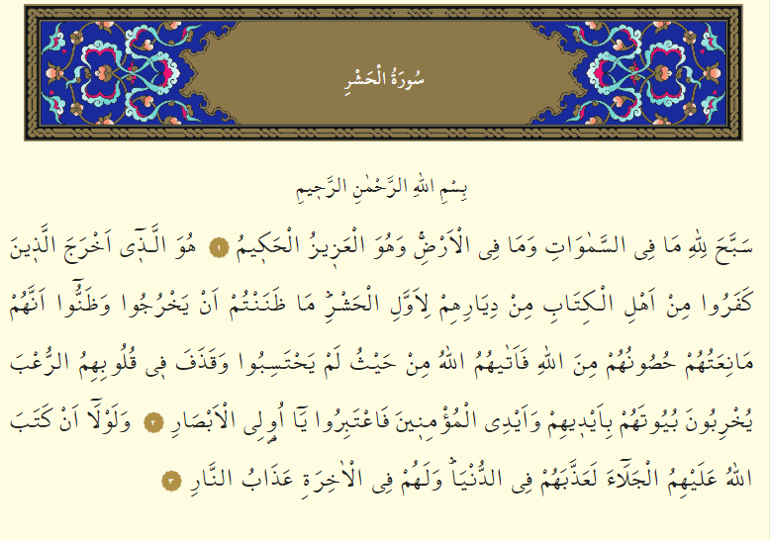 سُورَةُ الْحَشْرِ
بِسْمِ اللهِ الرَّحْمٰنِ الرَّحٖيمِ
سَبَّحَ لِلّٰهِ مَا فِى السَّمٰوَاتِ وَمَا فِى الْاَرْضِۚ وَهُوَ الْعَزٖيزُ الْحَكٖيمُ ﴿١﴾ هُوَ الَّـذٖٓى اَخْرَجَ الَّذٖينَ
كَفَرُوا مِنْ اَهْلِ الْكِتَابِ مِنْ دِيَارِهِمْ لِاَوَّلِ الْحَشْرِؕ مَا ظَنَنْتُمْ اَنْ يَخْرُجُوا وَظَنُّٓوا اَنَّهُمْ
مَانِعَتُهُمْ حُصُونُهُمْ مِنَ اللهِ فَاَتٰيهُمُ اللهُ مِنْ حَيْثُ لَمْ يَحْتَسِبُوا وَقَذَفَ فٖى قُلُوبِهِمُ الرُّعْبَ
يُخْرِبُونَ بُيُوتَهُمْ بِاَيْدٖيهِمْ وَاَيْدِى الْمُؤْمِنٖينَ فَاعْتَبِرُوا يَٓا اُو۬لِى الْاَبْصَارِ ﴿٢﴾ وَلَوْلَٓا اَنْ كَتَبَ
اللهُ عَلَيْهِمُ الْجَلَٓاءَ لَعَذَّبَهُمْ فِى الدُّنْيَاؕ وَلَهُمْ فِى الْاٰخِرَةِ عَذَابُ النَّارِ ﴿٣﴾